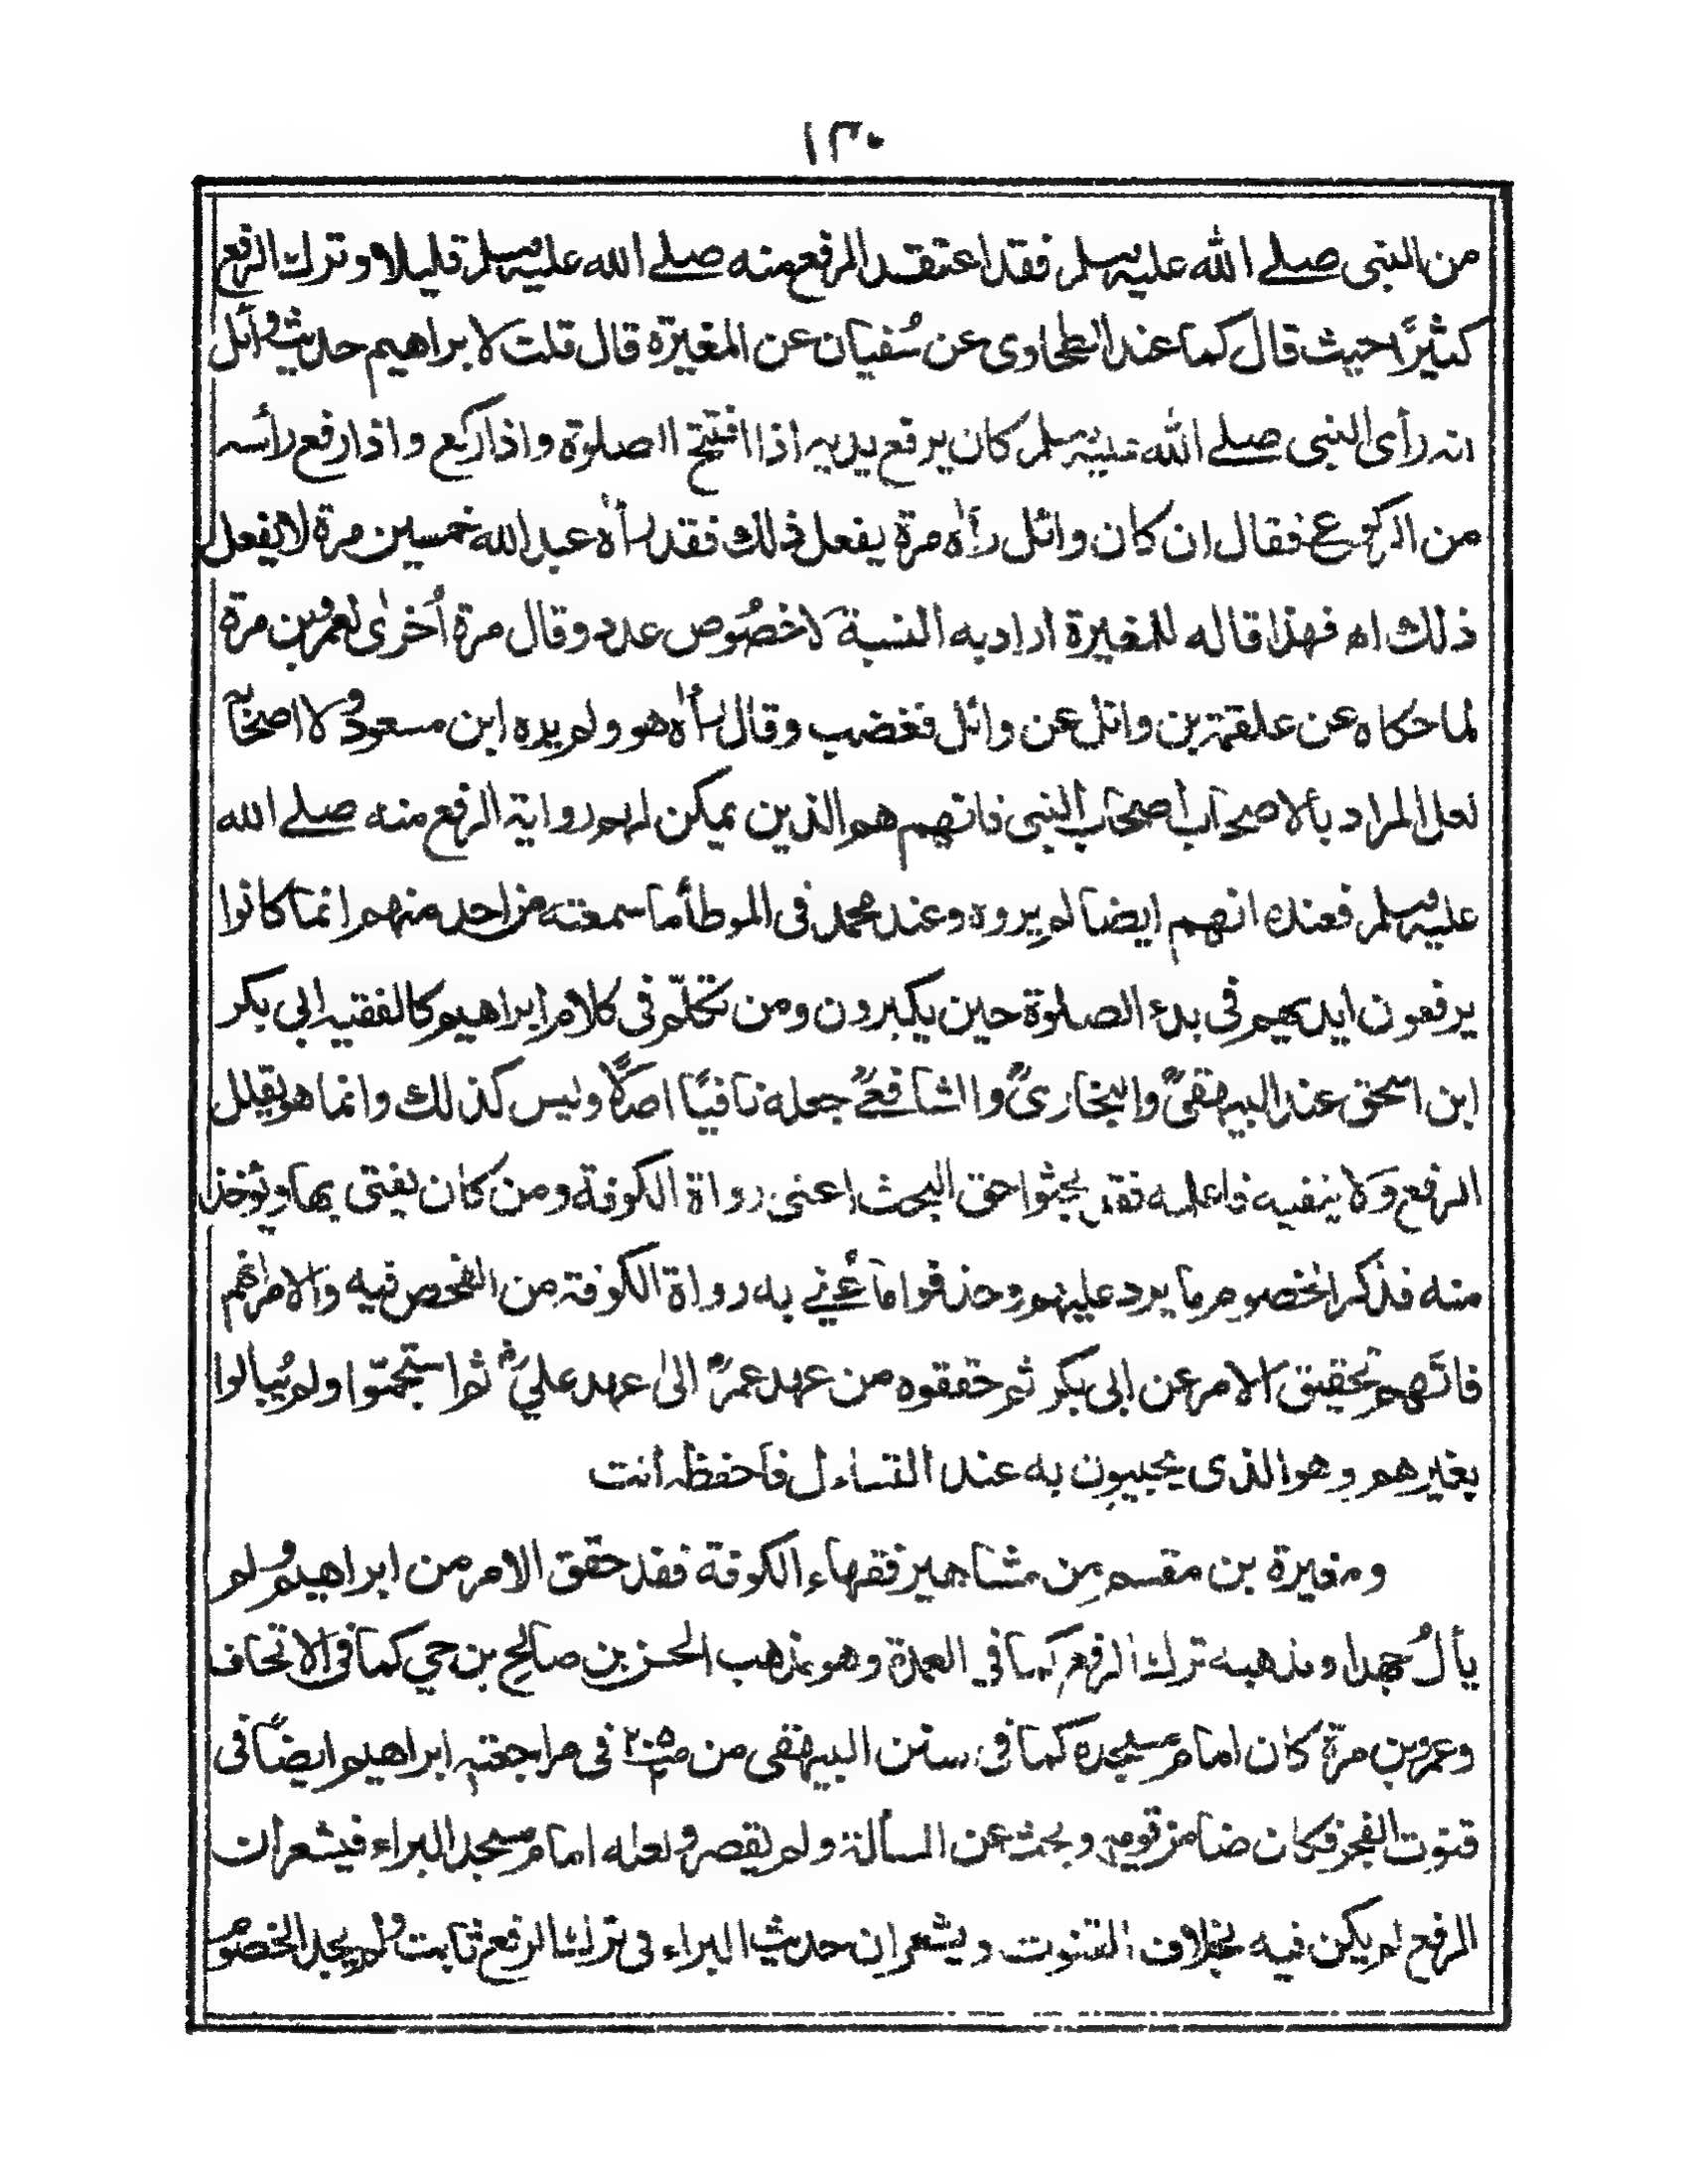 ١٣٠
من النبى صلے الله عليه وسلم فقد اعتقد الرفع منه صلے الله عليه وسلم قليلا وترك الرفع
كثيرًا حيث قال كما عند الطحاوى عن سُفيان عن المغيرة قال قلت لابراهيم حديث وائل
انه رأى النبى صلے الله عليه وسلم كان يرفع يديه اذا افتتح الصلوة واذا ركع واذا رفع رأسه
من الركوع فقال ان كان وائل رأه مرة يفعل ذلك فقد رأه عبد الله خمسين مرة لا يفعل
ذلك اه فهذا قاله للمغيرة اراد به النسبة لا خصُوص عدد وقال مرة أخرىٰ لعمرو بن مرة
لما حكاه عن علقمة بن وائل عن وائل فغضب وقال رأه هو ولم يره ابن مسعود ولا اصحابه
لعل المراد بالاصحاب اصحاب النبى فانهم هم الذين يمكن لهم رواية الرفع منه صلے الله
عليه وسلم فعنده انهم ايضا لم يروه وعند محمد فى الموطأ ما سمعته من احد منهم انما كانوا
يرفعون ايديهم فى بدء الصلوة حين يكبرون ومن تكلّم فى كلام ابراهيم كالفقيه ابى بكر
ابن اسحٰق عند البيهقىؒ والبخارىؒ والشافعےؒ جعله نافيًا اصلًا وليس كذلك وانما هو يقلل
الرفع ولا ينفيه فاعلمه فقد بحثوا حق البحث اعنى رواة الكوفة ومن كان يفتى بها ويؤخذ
منه فذكر الخصوم ما يرد عليهم وحذفوا ما عُنے به رواة الكوفة من الفحص فيه والامر اغم
فاتهم تحقيق الامر عن ابى بكر ثم حققوه من عهد عمرؓ الىٰ عهد علىؓ ثم استجمّوا ولم يُبالوا
بغيرهم وهو الذى يجيبون به عند التساءل فاحفظه انت
ومغيرة بن مقسم من مشاهير فقهاء الكوفة فقد حقق الامر من ابراهيم ولم
يألُ جهدا ومذهبه ترك الرفع كما فى العمدة وهو مذهب الحسن بن صالح بن حي كما فى الاتحاف
وعمرو بن مرة كان امام مسجده كما فى سنن البيهقى من فى مراجعته ابراهيم ايضًا فى
قنوت الفجر فكان ضامن قومه وبحث عن المسألة ولم يقصر ولعله امام مسجد البراء فيشعر ان
الرفع لم يكن فيه بخلاف القنوت ويشعر ان حديث البراء فى ترك الرفع ثابت ولم يجد الخصوم